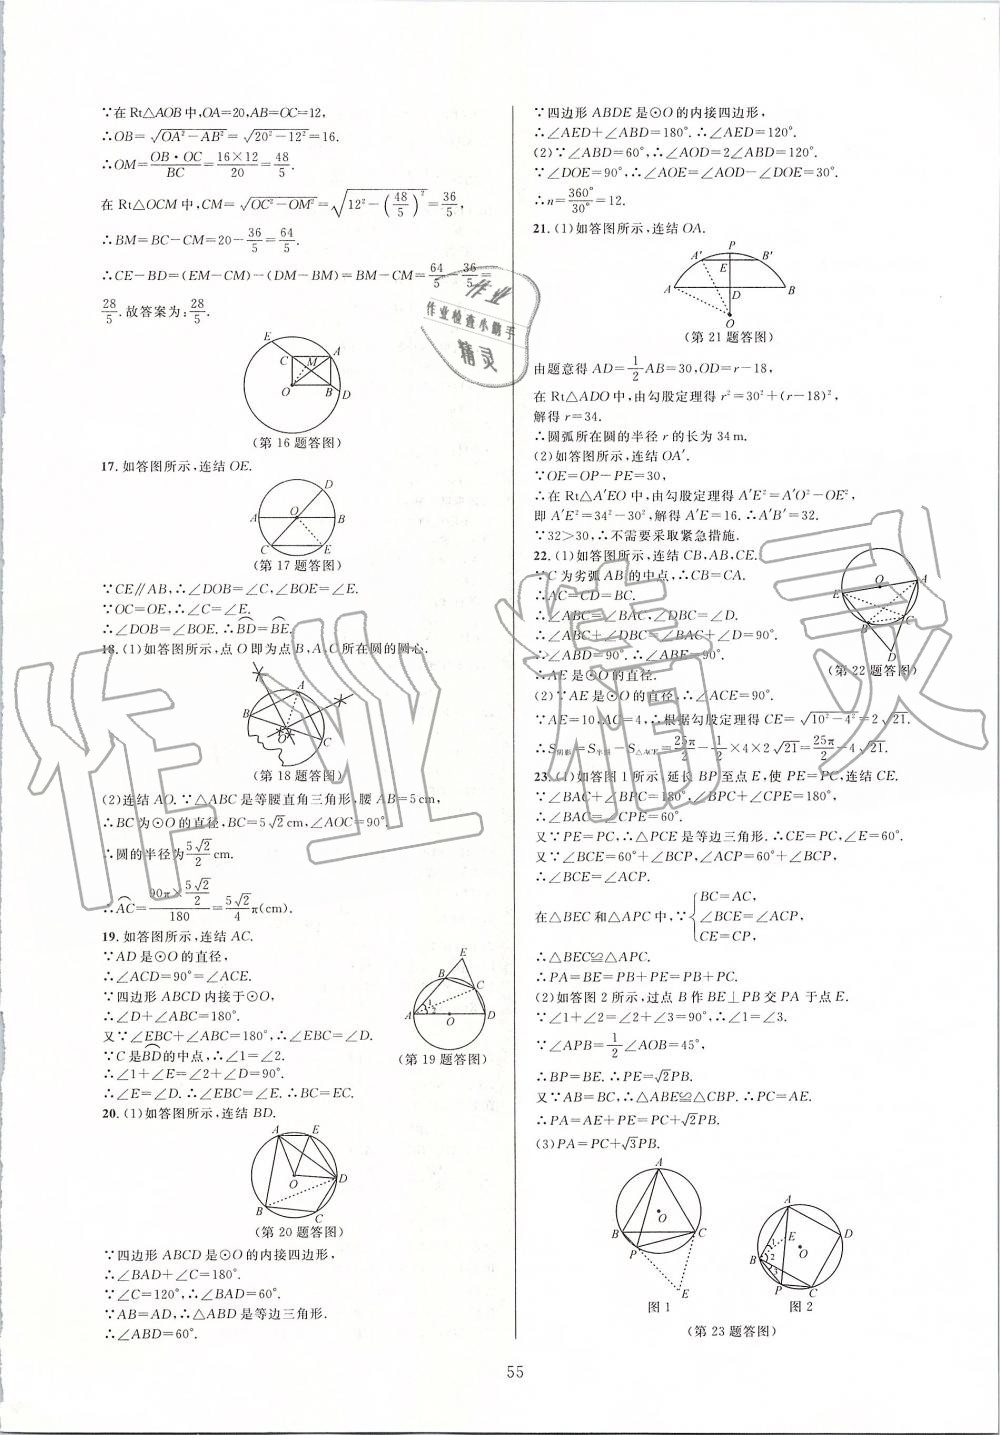 ∵在Rt△AOB中,OA=20,AB=OC=12,
∴OB=√(OA²-AB²)=√(20²-12²)=16.
∴OM=OB·OC/BC=16×12/20=48/5.
在Rt△OCM中,CM=√(OC²-OM²)=√(12²-(48/5)²)=36/5,
∴BM=BC-CM=20-36/5=64/5.
∴CE-BD=(EM-CM)-(DM-BM)=BM-CM=64/5-36/5=
28/5.故答案为:28/5.
E
C M A
O B D
(第16题答图)
17.如答图所示,连结OE.
D
A O B
C E
(第17题答图)
∵CE∥AB,∴∠DOB=∠C,∠BOE=∠E.
∵OC=OE,∴∠C=∠E.
∴∠DOB=∠BOE.∴B͡D=B͡E.
18.(1)如答图所示,点O即为点B,A,C所在圆的圆心.
A
B
O C
(第18题答图)
(2)连结AO.∵△ABC是等腰直角三角形,腰AB=5cm,
∴BC为⊙O的直径,BC=5√2cm,∠AOC=90°.
∴圆的半径为5√2/2cm.
∴A͡C=(90π×5√2/2)/180=5√2/4π(cm).
19.如答图所示,连结AC.
∵AD是⊙O的直径,
∴∠ACD=90°=∠ACE.
∵四边形ABCD内接于⊙O,
∴∠D+∠ABC=180°.
又∵∠EBC+∠ABC=180°,∴∠EBC=∠D.
∵C是B͡D的中点,∴∠1=∠2.
∴∠1+∠E=∠2+∠D=90°.
∴∠E=∠D.∴∠EBC=∠E.∴BC=EC.
E
B
C
1
2
A O D
(第19题答图)
20.(1)如答图所示,连结BD.
A E
O D
B C
(第20题答图)
∵四边形ABCD是⊙O的内接四边形,
∴∠BAD+∠C=180°.
∵∠C=120°,∴∠BAD=60°.
∵AB=AD,∴△ABD是等边三角形.
∴∠ABD=60°.
∵四边形ABDE是⊙O的内接四边形,
∴∠AED+∠ABD=180°.∴∠AED=120°.
(2)∵∠ABD=60°,∴∠AOD=2∠ABD=120°.
∵∠DOE=90°,∴∠AOE=∠AOD-∠DOE=30°.
∴n=360°/30°=12.
21.(1)如答图所示,连结OA.
P
A′ E B′
A D B
O
(第21题答图)
由题意得AD=1/2AB=30,OD=r-18,
在Rt△ADO中,由勾股定理得r²=30²+(r-18)²,
解得r=34.
∴圆弧所在圆的半径r的长为34m.
(2)如答图所示,连结OA′.
∵OE=OP-PE=30,
∴在Rt△A′EO中,由勾股定理得A′E²=A′O²-OE²,
即A′E²=34²-30²,解得A′E=16.∴A′B′=32.
∵32>30,∴不需要采取紧急措施.
22.(1)如答图所示,连结CB,AB,CE.
∵C为劣弧AB的中点,∴CB=CA.
∴AC=CD=BC.
∴∠ABC=∠BAC,∠DBC=∠D.
∴∠ABC+∠DBC=∠BAC+∠D=90°.
∴∠ABD=90°.∴∠ABE=90°.
∴AE是⊙O的直径.
(2)∵AE是⊙O的直径,∴∠ACE=90°.
∵AE=10,AC=4,∴根据勾股定理得CE=√(10²-4²)=2√21.
∴S阴影=S半圆-S△ACE=25π/2-1/2×4×2√21=25π/2-4√21.
O A
E
B C
D
(第22题答图)
23.(1)如答图1所示,延长BP至点E,使PE=PC,连结CE.
∵∠BAC+∠BPC=180°,∠BPC+∠CPE=180°,
∴∠BAC=∠CPE=60°.
又∵PE=PC,∴△PCE是等边三角形.∴CE=PC,∠E=60°.
又∵∠BCE=60°+∠BCP,∠ACP=60°+∠BCP,
∴∠BCE=∠ACP.
在△BEC和△APC中,∵{BC=AC,
∠BCE=∠ACP,
CE=CP,
∴△BEC≌△APC.
∴PA=BE=PB+PE=PB+PC.
(2)如答图2所示,过点B作BE⊥PB交PA于点E.
∵∠1+∠2=∠2+∠3=90°,∴∠1=∠3.
∵∠APB=1/2∠AOB=45°,
∴BP=BE.∴PE=√2PB.
又∵AB=BC,∴△ABE≌△CBP.∴PC=AE.
∴PA=AE+PE=PC+√2PB.
(3)PA=PC+√3PB.
A
O
B C
P
E
图1
A
D
E
1
2
3
O
B
P C
图2
(第23题答图)
55
作业
作业检查小鹏手
精灵
作业精灵